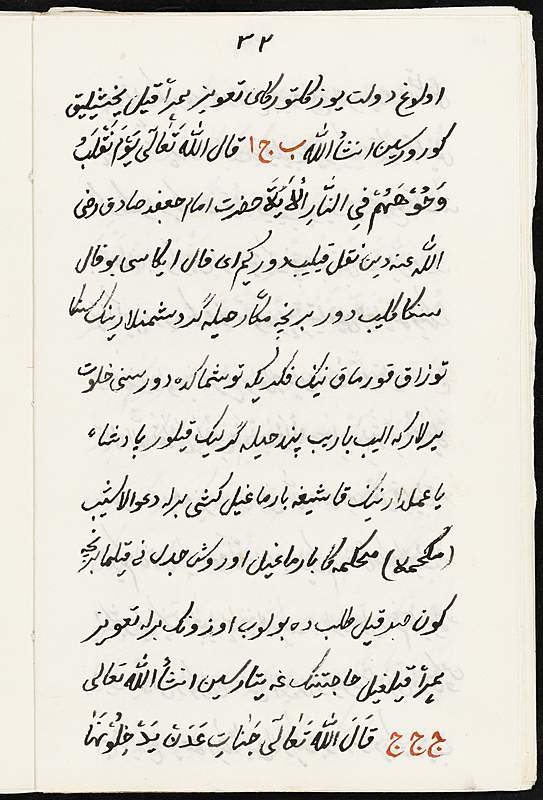 ۳۲
اولوغ دولت یوز کلتورکای تعویز همراٰ قیل یخشیلیق
کورورسین انشأ الله ب ج ا قال الله تَعَالَی یَوْمَ تُقَلَبُ
وُجُوْهَهُمْ فِی النَّارِ حضرت امام جعفر صادق رضی
الله عنه دین نقل قیلیب دور کیم ای فال ایکاسی بو فال
سنکا کلیب دور برنچه مکّار حیله گر دشمنلارینک سنکا
توزاق قورماق نینک فکریکه توشماکده دور سنی خلوت
یرلارکه الیب باریب پند حیله گرلیک قیلور پادشاء
یا عملدارنینک قاشیغه بارماغیل کشی برله دعوالاشیب
محکمه کا بارماغیل اوروش جدل نی قیلما برنچه
کون صبر قیل طلب ده بولوب اوزونک برله تعویز
همراٰ قیلغیل حاجتینک غه یتارسین انشأ الله تعالی
ج ج ج قَالَ الله تَعَالَی جَنَاتِ عَدَنٍ یَدْخِلُوْنَهَا